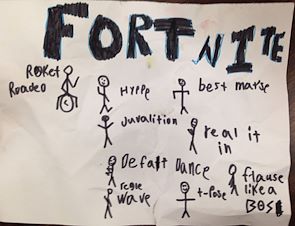 FORTNITE
ROKET
Roadeo
Hyppe
best matse
Juvalition
real it
in
Defalt Dance
regle
wave
t-pose
flause
like a
BOS